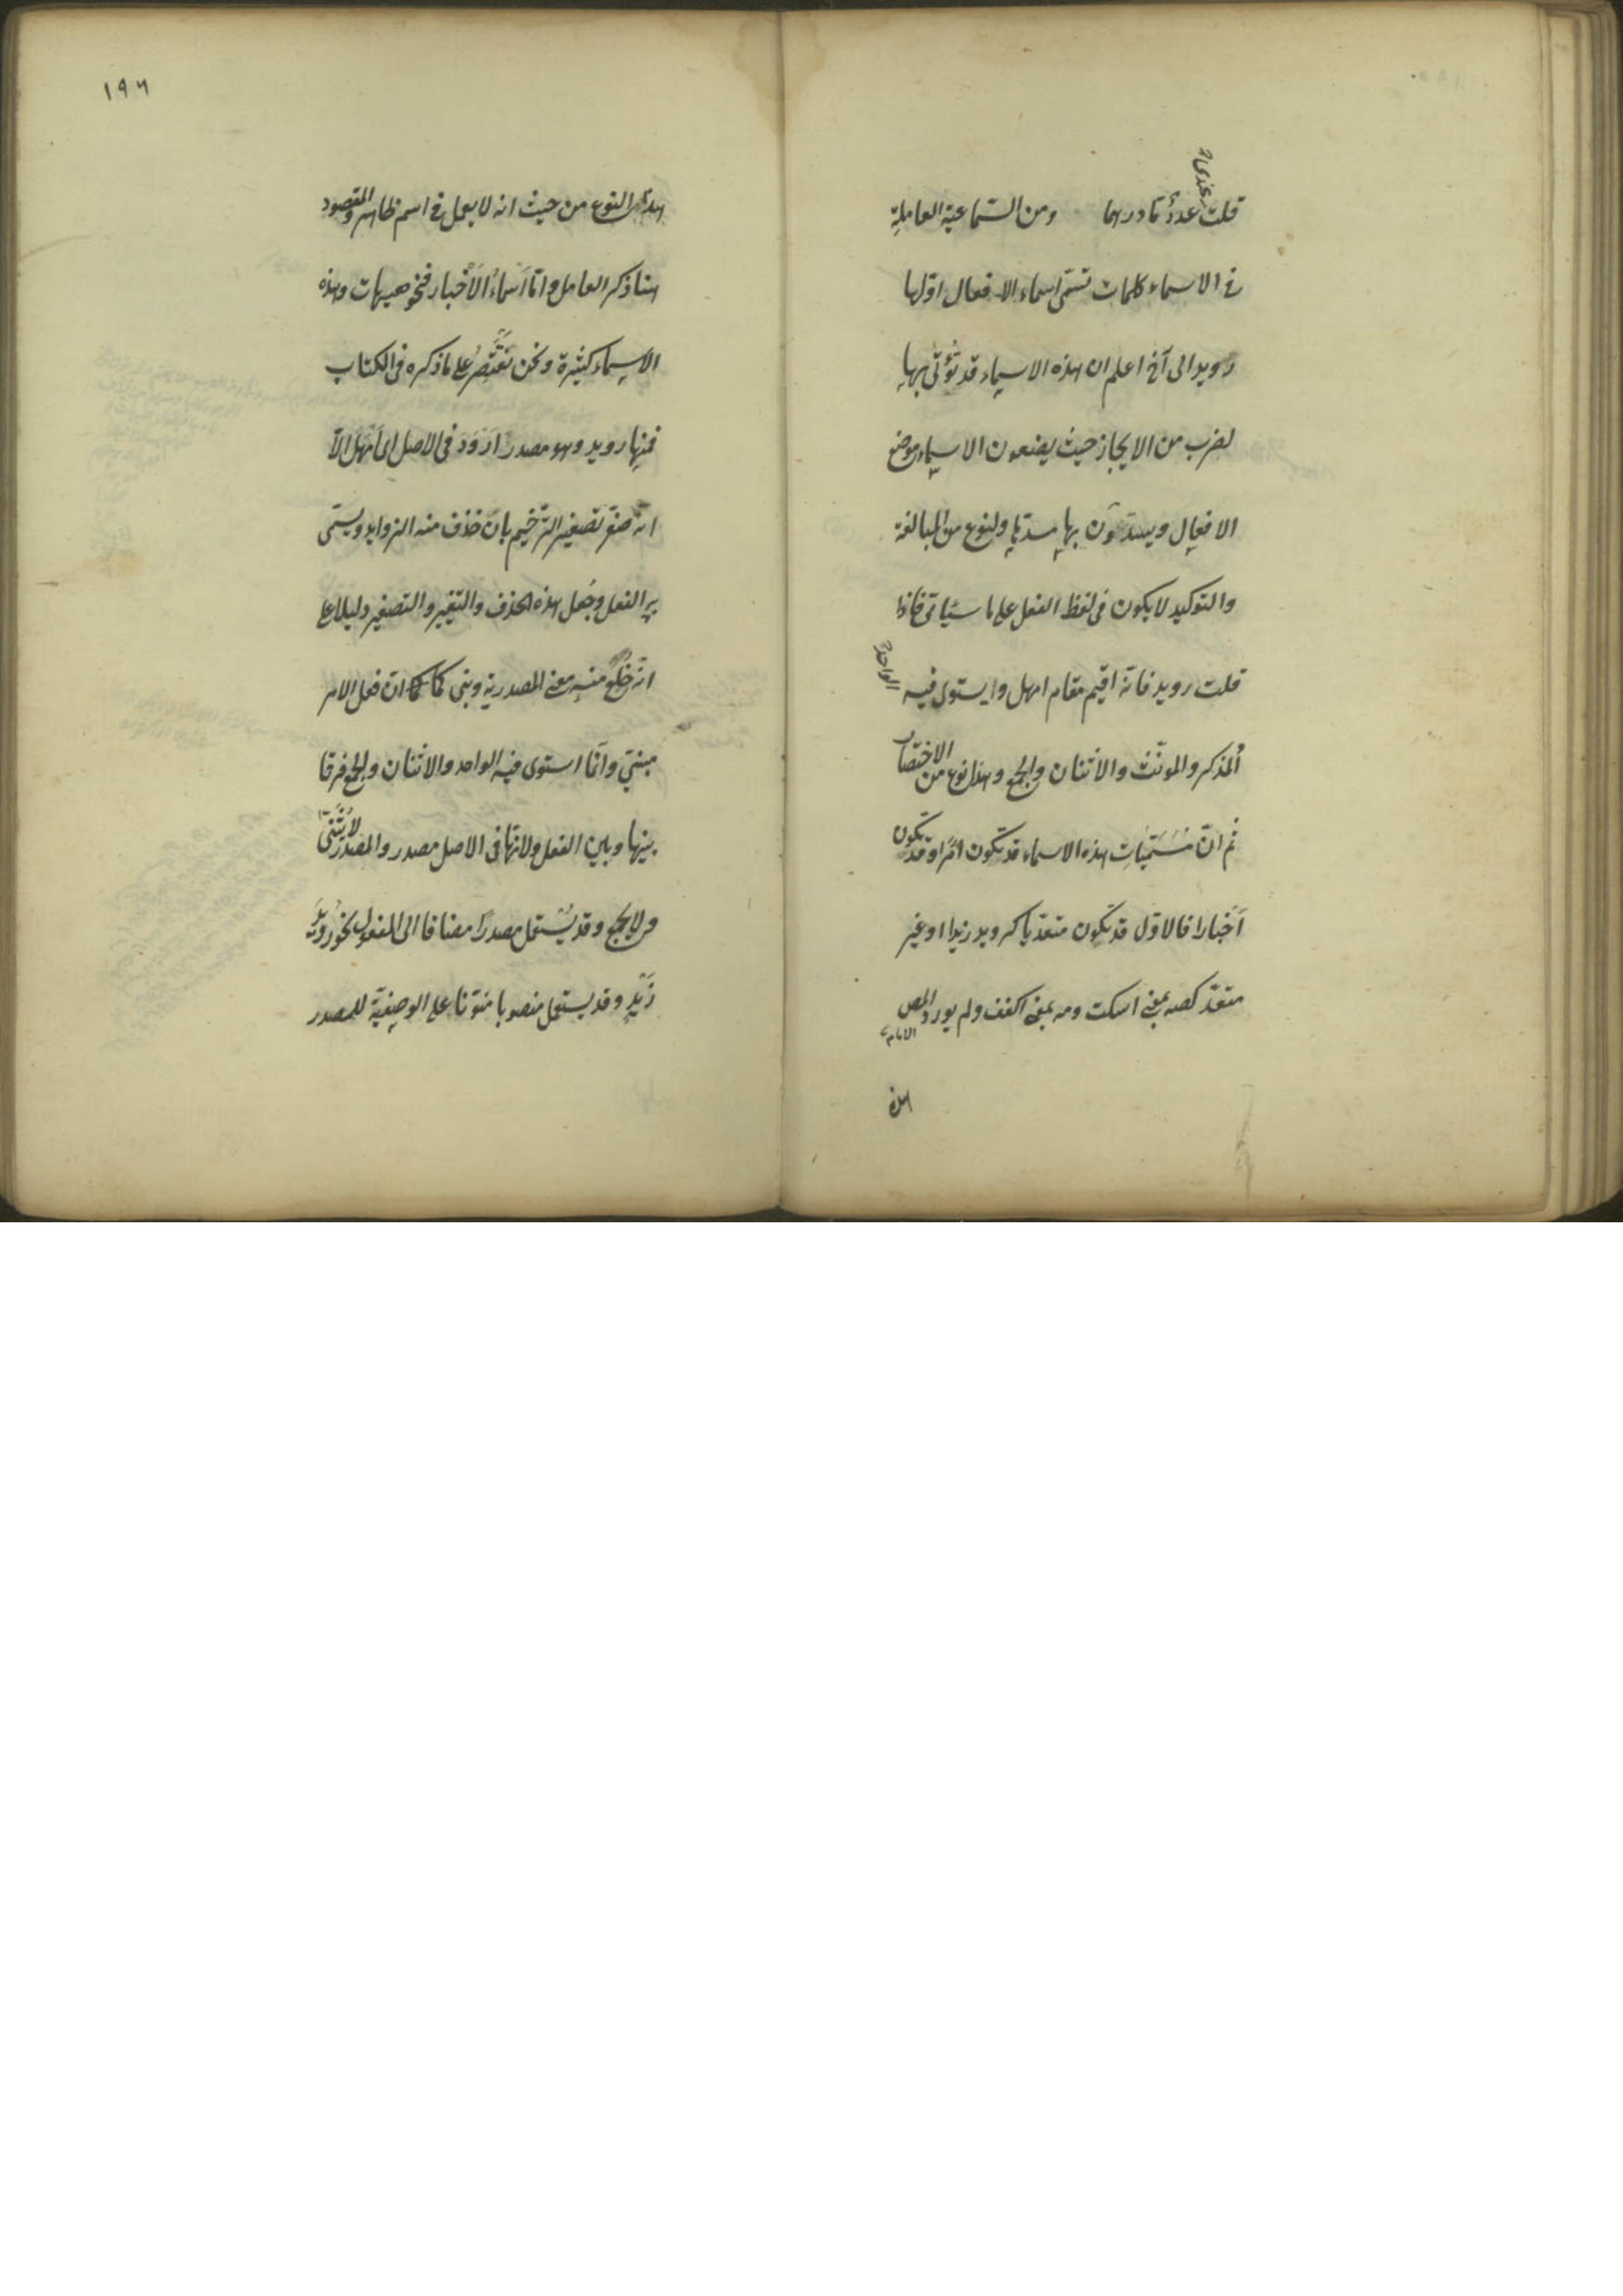 عندی
قلت عددٌ ما درهما ومن السّماعية العاملة
فی الاسماء كلمات تسمّی اسماء الافعال اوّلها
رويد الی آخ اعلم ان هذه الاسماء قد تُؤتی بها
لضرب من الايجاز حيث يضعون الاسماء موضع
الافعال ويسدّون بها مسدّها ولنوع من المبالغة
والتوكيد لا يكون فی لفظ الفعل علی ما سيأتی فاذا
قلت رويد فانه اقيم مقام امهل و يستوی فيه الواحد
المذكر والمونّث والاثنان والجمع وهذا نوع من الاختصار
ثم انّ مُسَمّيات هذه الاسماء قد تكون امرًا وقد تكون
اَخبارا فالاوّل قد تكون متعدّيا كرويد زيدا او غير
متعدّ كصه بمعنی اسكت ومه بمعنی اكفف ولم يورد المص
الامام
هذا
١٩٦
هذا النوع من حيث انه لا يعمل فی اسم ظاهر والمقصود
هنا ذكر العامل وامّا اَسماءُ الاَخبار فنحو هيهات وهذه
الاسماء كثيرة ونحن نَقتَصِرُ علی ما ذكره فی الكتاب
فمنها رويد وهو مصدر اَروَدَ فی الاصل ای اَمهَلَ الّا
انّه صغّر تصغير الترخيم بان حذف منه الزوايد ويسمّی
به الفعل وجُعل هذه الحذف والتغير والتصغير دليلا علی
انّه خُلِعَ منه معنی المصدرية وبنی كما انّ فعل الامر
مبنیّ وانّما استوی فيه الواحد والاثنان والجمع فرقا
بينها وبين الفعل ولانّها فی الاصل مصدر والمصدر لا يُثنّی
ولا يجمع وقد يُستعمل مصدرًا مضافا الی المفعول نحو رويد
زَيدٍ وقد يستعمل منصوبا منوّنا علی الوصفيّة للمصدر